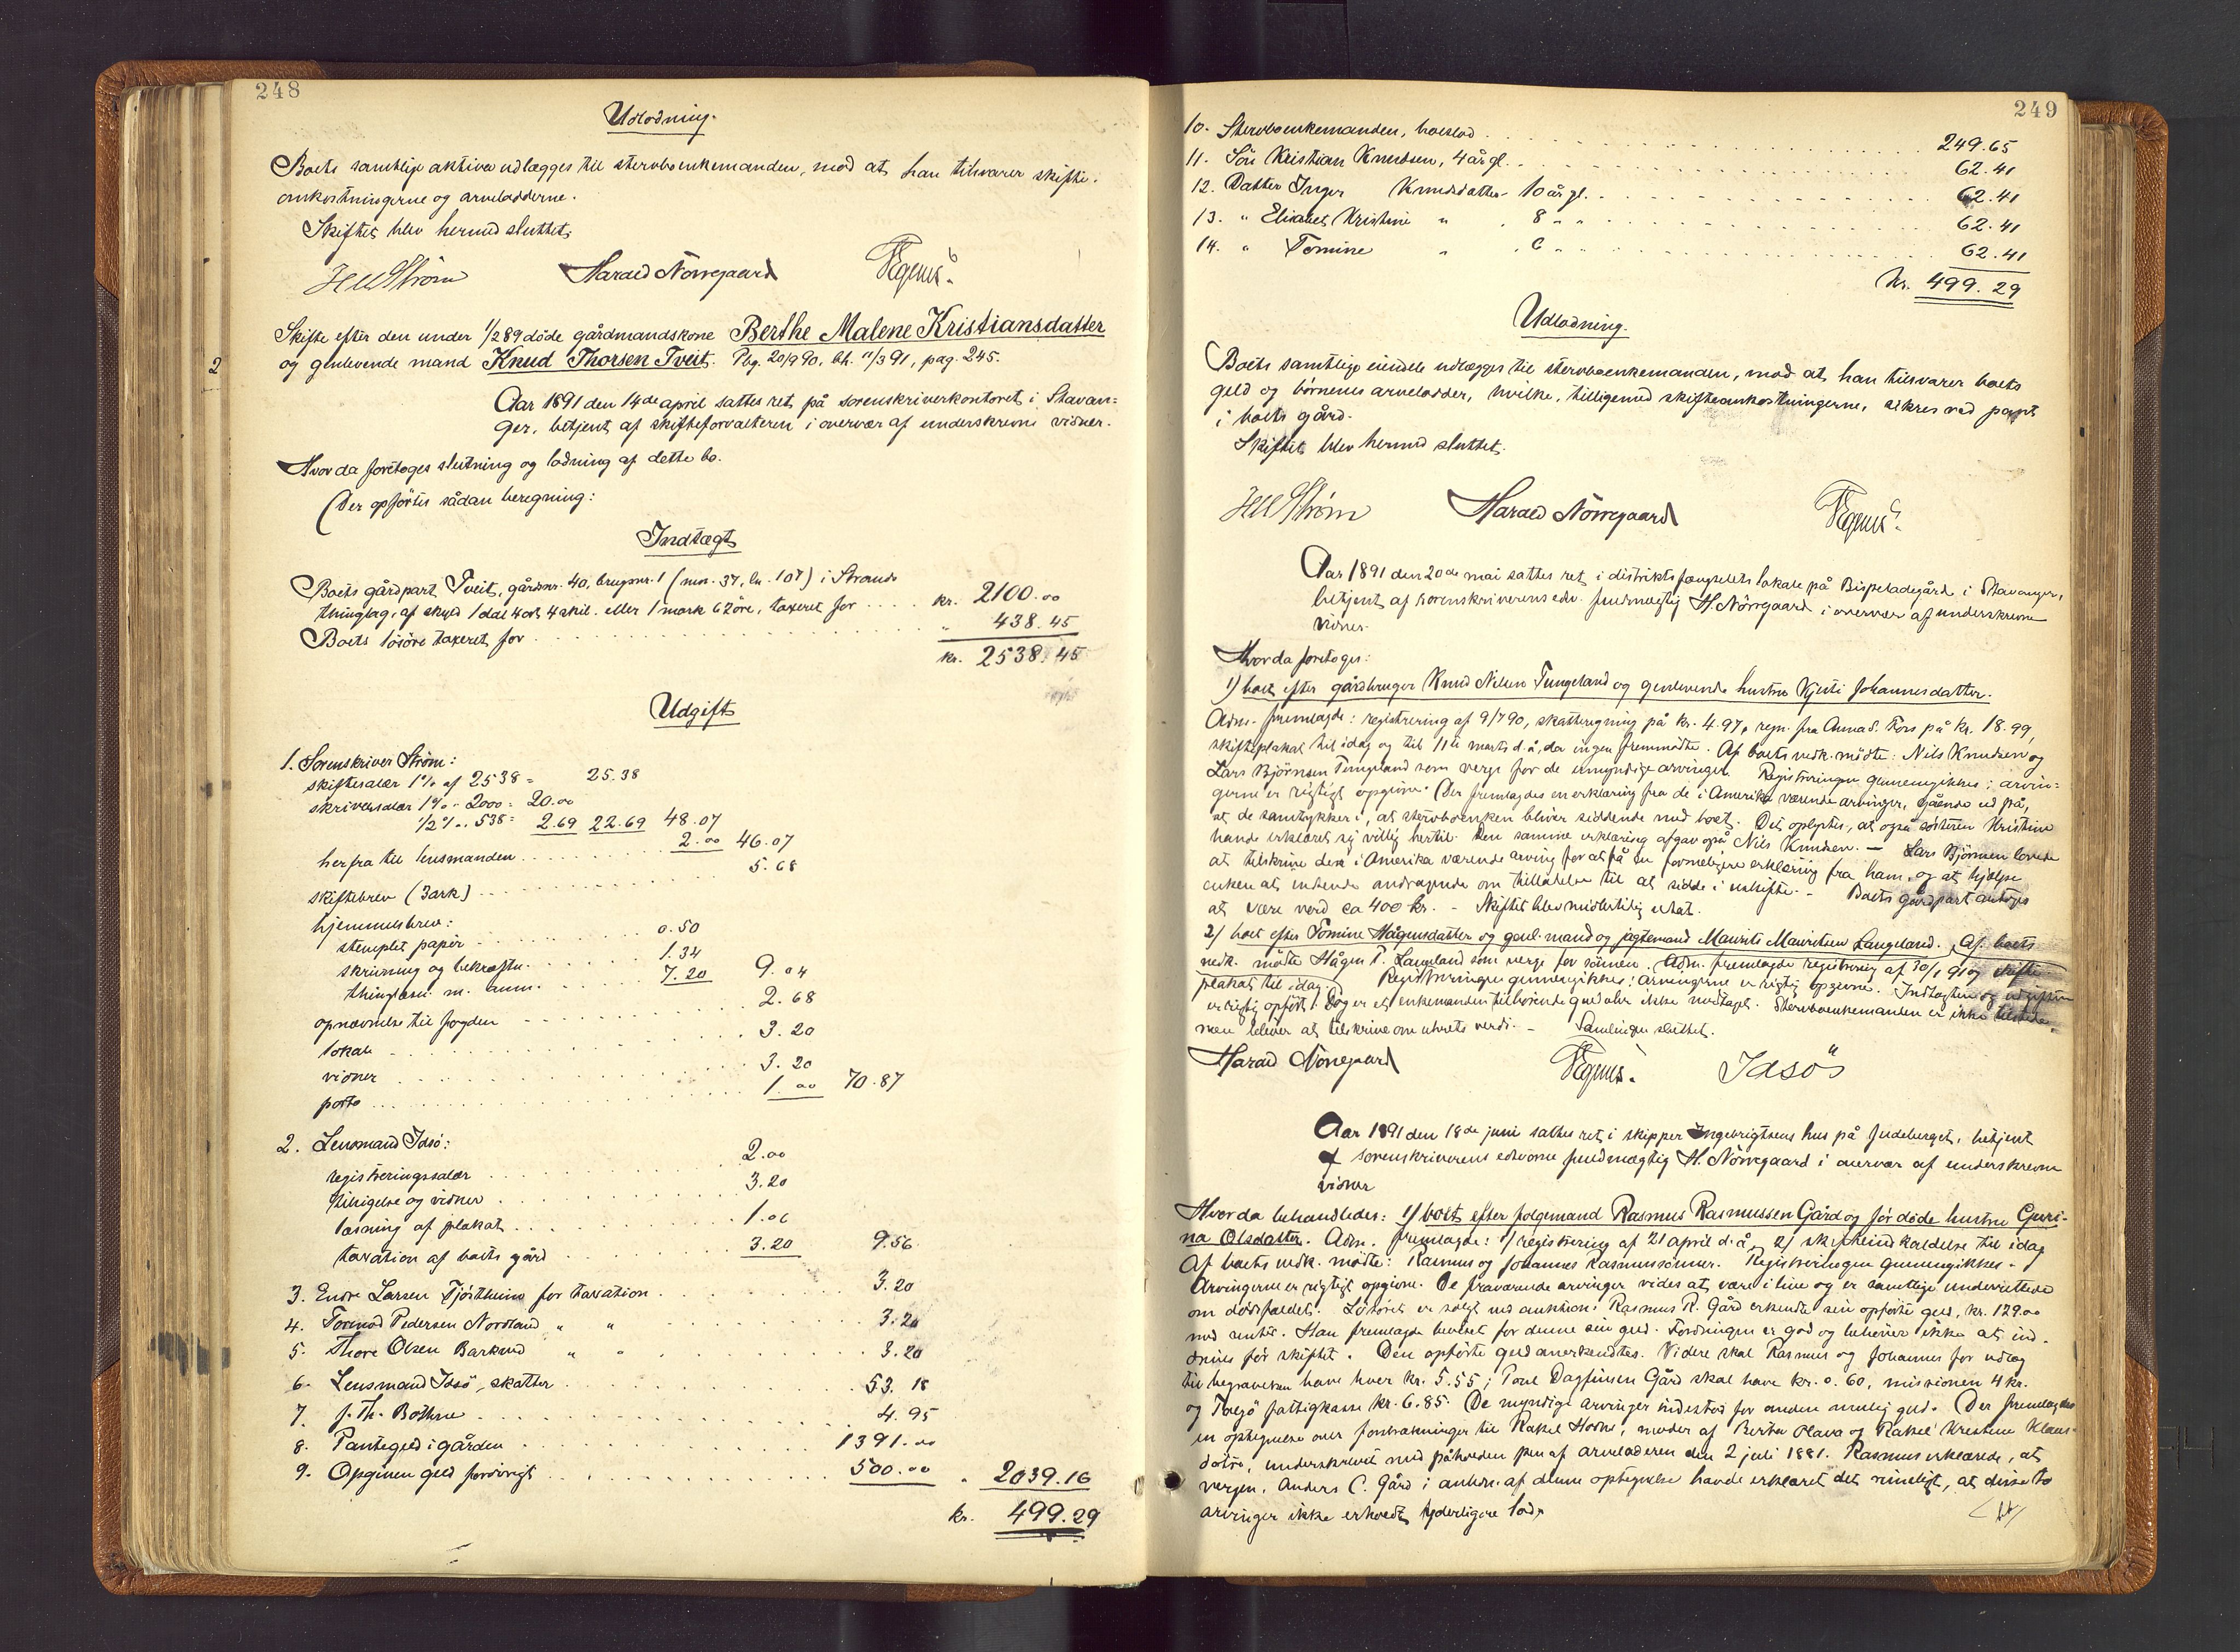 248
Udlodning.
Boets samtlige aktiva udlægges til stervboenkemanden, mod at han tilsvarer skifte-
omkostningerne og arvelodderne.
Skiftet blev hermed sluttet.
Strøm Harald Nörregaard
Skifte efter den under 1/2 89 döde gårdmandskone Berthe Malene Kristiansdatter
2 og gjenlevende mand Knud Thorsen Tveit. Pbg. 20/9 90, bh. 11/3 91, pag. 245.
Aar 1891 den 14de april sattes ret på sorenskriverkontoret i Stavan=
ger, betjent af skifteforvalteren i overvær af underskrevne vidner.
Hvor da foretoges slutning og lodning af dette bo.
Der opförtes sådan beregning:
Indtægt
Boets gårdpart Tveit, gårdsnr. 40, brugsnr. 1 (mn. 37, ln. 107) i Strands
thinglag, af skyld 1 dal. 4 ort 4 skil. eller 1 mark 62 öre, taxeret for .... kr. 2100.00
Boets lösöre taxeret for .... " 438.45
kr. 2538.45
Udgift
1. Sorenskriver Ström:
skiftesalær 1% af 2538 = 25.38
skriversalær 1% " 2000 = 20.00
1/2% " 538 = 2.69 22.69 48.07
herfra til lensmanden .... 2.00 46.07
skiftebrev (3 ark) .... 5.68
hjemmelsbrev:
stemplet papir .... 0.50
skrivning og bekræftn. .... 1.34
thinglæsn. m. anm. .... 7.20 9.04
opnævnelse til fogden .... 2.68
lokale .... 3.20
vidner .... 3.20
porto .... 1.00 70.87
2. Lensmand Idsö:
registreringssalær .... 2.00
tilsigelse og vidner .... 3.20
læsning af plakat .... 1.
taxation af boets gård .... 3.20 9.56
3. Endre Larsen Tjöstheim for taxation .... 3.20
4. Tormod Pedersen Nordland " " .... 3.20
5. Thore Olsen Barkved " " .... 3.20
6. Lensmand Idsö, skatter .... 53.18
7. J. Th. Bothne .... 4.95
8. Pantegjeld i gården .... 1391.00
9. Opgiven gjeld forövrigt .... 500.00 " 2039.16
kr. 499.29
249
10. Stervboenkemanden, boeslod .... 249.65
11. Sön Kristian Knudsen, 4 år gl. .... 62.41
12. Datter Inger Knudsdatter 10 år gl. .... 62.41
13. " Elisabet Kristine " 8 " " .... 62.41
14. " Tomine " 6 " .... 62.41
Kr. 499.29
Udlodning.
Boets samtlige eiendele udlægges til stervboenkemanden, mod at han tilsvarer boets
gjeld og börnenes arvelodder, hvilke, tilligemed skifteomkostningerne, sikres ved pant
i boets gård.
Skiftet blev hermed sluttet.
Strøm Harald Nörregaard
Aar 1891 den 20de mai sattes ret i distriktsfængselets lokale på Bispeladegård i Stavanger,
betjent af sorenskriverens edsv. fuldmægtig H. Nörregaard i overvær af underskrevne
vidner.
Hvor da foretoges:
1) boet efter gårdbruger Knud Nilsen Tungeland og gjenlevende hustru Kjersti Johannesdatter.
Adm. fremlagde: registrering af 9/7 90, skatteregning på kr. 4.97, regn. fra Anna S. Fors på kr. 18.99,
skifteplakat til idag og til 11te marts d.å., da ingen fremmödte. Af boets vedk. mödte: Nils Knudsen og
Lars Björnsen Tungeland som verge for de umyndige arvinger. Registreringen gjennemgikkes; arvin=
gerne er rigtigt opgivne. Der fremlagdes en erklæring fra de i Amerika værende arvinger, gående ud på,
at de samtykker i, at stervboenken bliver siddende med boet. Det oplystes, at også sösteren Kristine
havde erklæret sig villig hertil. Den samme erklæring afgav også Nils Knudsen. — Lars Björnsen lovede
at tilskrive den i Amerika værende arving for at få en formeligere erklæring fra ham, og at hjælpe
enken at indsende andragende om tilladelse til at sidde i uskifte. — Boets gårdpart antoges
at være værd ca 400 kr. — Skiftet blev midlertidig udsat.
2) boet efter Tomine Hågensdatter og gjenl. mand og jægtemand Maurits Mauritsen Langeland. Af boets
vedk. mödte Hågen T. Langeland som verge for sönnen. Adm. fremlagde registrering af 30/1 91 og skifte-
plakat til idag. Registreringen gjennemgikkes: Arvingerne er rigtig opgivne. Indtægten og udgiften
er rigtig opfört. Dog er et enkemanden tilhörende gjedeler ikke medtaget. Stervboenkemanden er ikke tilstede,
men bliver at tilskrive om uhrets værdi. — Samlingen sluttet.
Harald Nörregaard Idsö
Aar 1891 den 18de juni sattes ret i skipper Ingebrigtsens hus på Judeberget, betjent
af sorenskriverens edsvorne fuldmægtig H. Nörregaard i overvær af underskrevne
vidner
Hvor da behandledes: 1) boet efter folgemand Rasmus Rasmussen Gård og för döde hustru Guri-
na Olsdatter. Adm. fremlagde: 1/ registrering af 21 april d.å., 2/ skifteindkaldelse til idag
Af boets vedk. mödte: Rasmus og Johannes Rasmussönner. Registreringen gjennemgikkes.
Arvingerne er rigtigt opgivne. De fraværende arvinger vides at være i live og er samtlige underrettede
om dödsfaldet. Lösöret er solgt ved auktion; Rasmus R. Gård erkendte sin opförte gjeld, kr. 129.00
med renter. Han fremlagde beviset for denne sin gjeld. Fordringen er god og behöver ikke at ind-
drives för skiftet. Den opförte gjeld anerkendtes. Videre skal Rasmus og Johannes for udlæg
til begravelsen have hver kr. 5.55; Poul Dagfinsen Gård skal have kr. 0.60, missionen 4 kr.
og Talgö fattigkasse kr. 6.85. De myndige arvinger indestod for anden mulig gjeld. Der fremlagdes
en optegnelse over forstrækninger til Rakel Hodne, moder af Berta Olava og Rakel Kristine Klaus-
döttre, underskrevet med påholden pen af arveladeren den 2 juli 1881. Rasmus erklærede, at
vergen, Anders C. Gård i anledn. af denne optegnelse havde erklæret det rimeligt, at disse to
arvinger ikke erholdt yderligere lod.